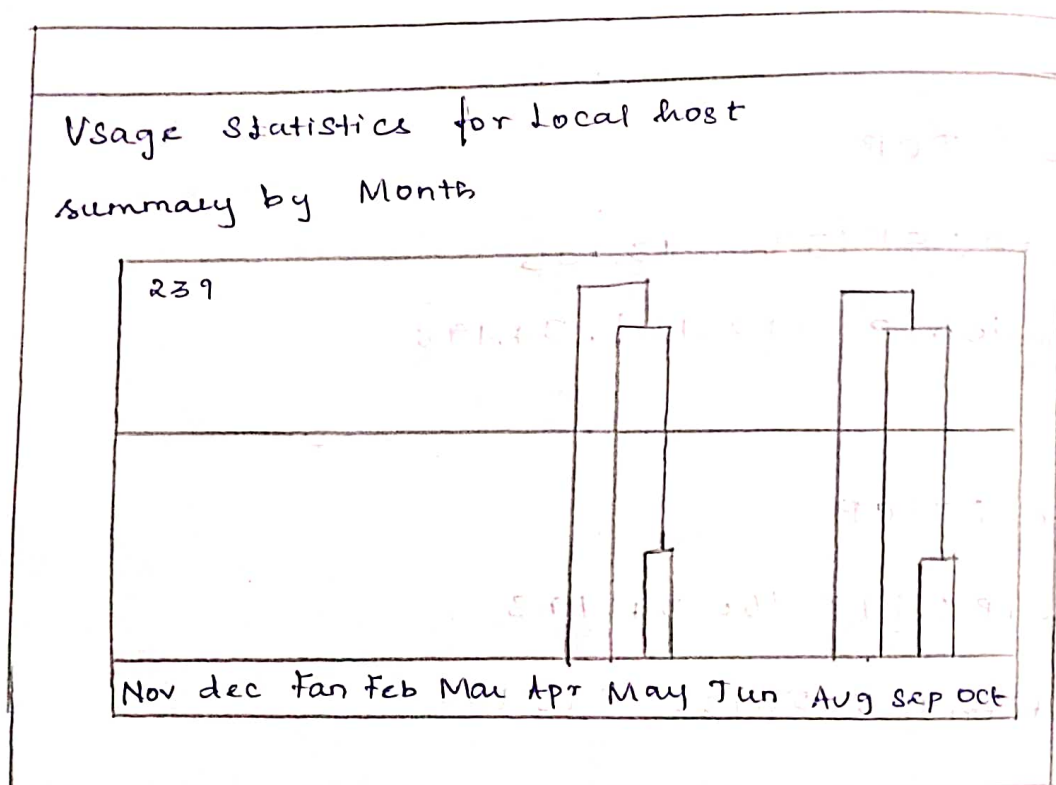 Usage Statistics for Local host
summary by Month
239
Nov dec Jan Feb Mar Apr May Jun Aug Sep Oct